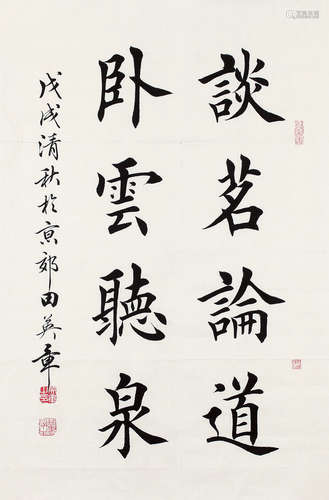 談茗論道
卧雲聽泉
戊戌清秋於京郊田英章